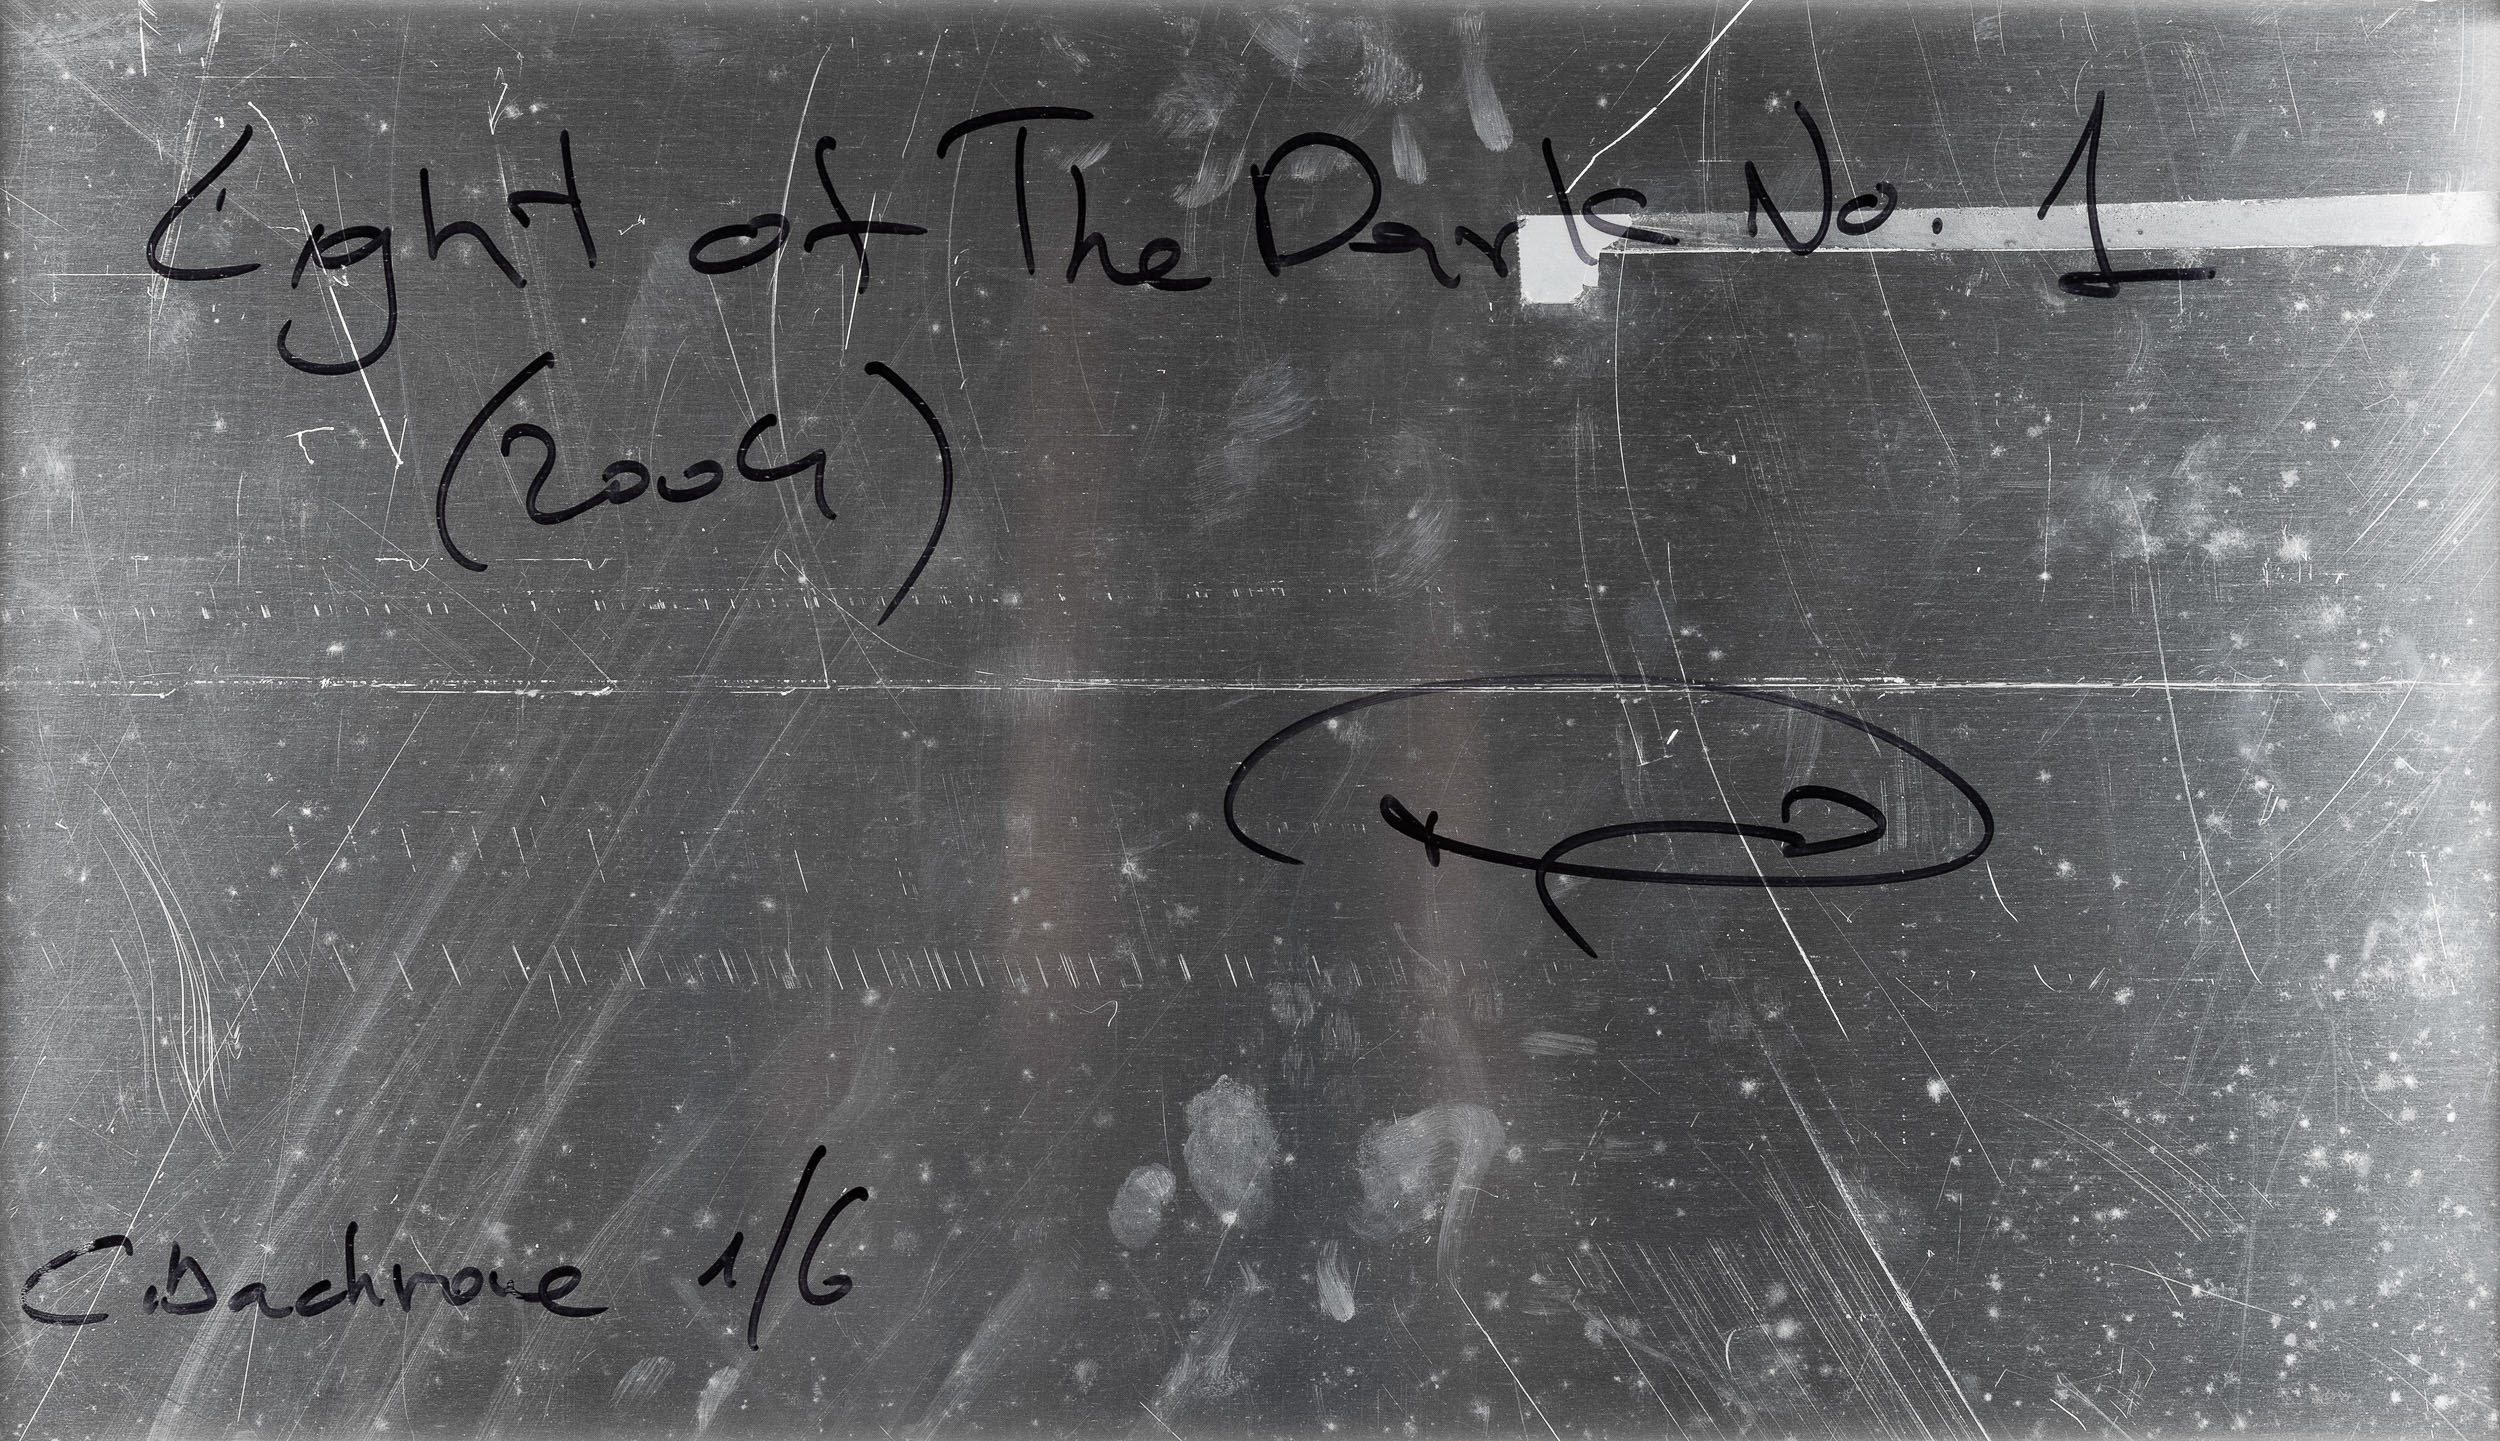 Light of The Dark No. 1
(2004)
C. Dachrome 1/6